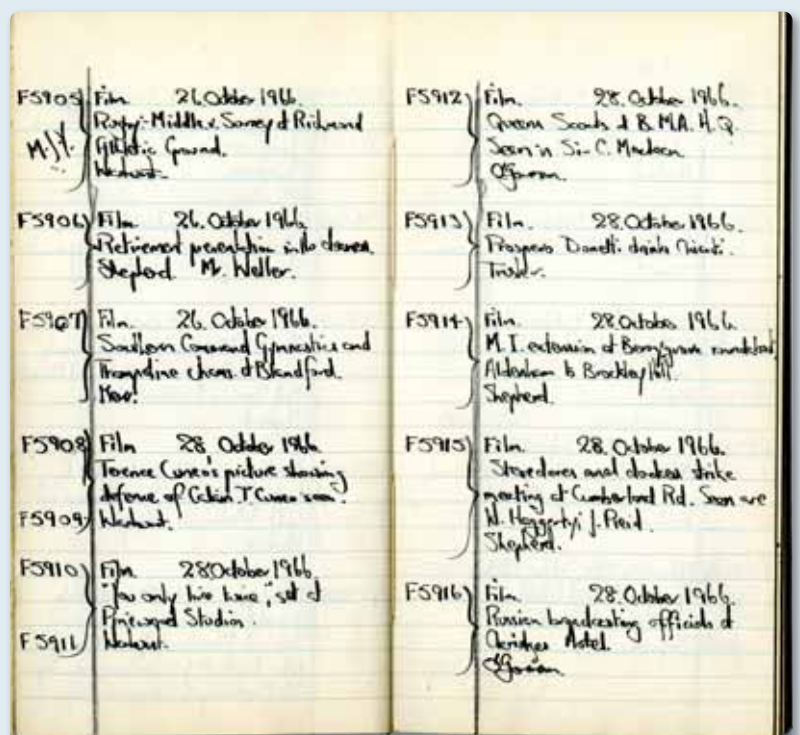 F5905 Film 26 October 1966.
Rugby: Middlx v. Surrey at Richmond
Athletic Ground.
F5906 Film 26. October 1966.
Retirement presentation in the
Shepherd Mr. Weller.
F5907 Film. 26. October 1966.
Southern Command Gymnastics and
Trampoline champs. at Blandford.
F5908 Film 28 October 1966.
Terence Cuneo's picture showing
defence of T. Cuneo seen.
F5909
F5910 Film 28 October 1966.
"You only live twice", set at
Pinewood Studios.
F5911
F5912 Film. 28. October 1966.
Queens Scouts at B.M.A. H.Q.
Seen is Sir C. Maclean
O'Gorman.
F5913 Film. 28 October 1966.
drinks
F5914 Film. 28 October 1966.
M.I. extension at Berrygrove roundabout
Aldenham to Brockley Hill.
Shepherd.
F5915 Film. 28. October 1966.
Stevedores and dockers strike
meeting at Cumberland Rd. Seen are
J. Reid.
Shepherd.
F5916 Film. 28. October 1966.
Russian broadcasting officials at
Claridges Hotel.
O'Gorman